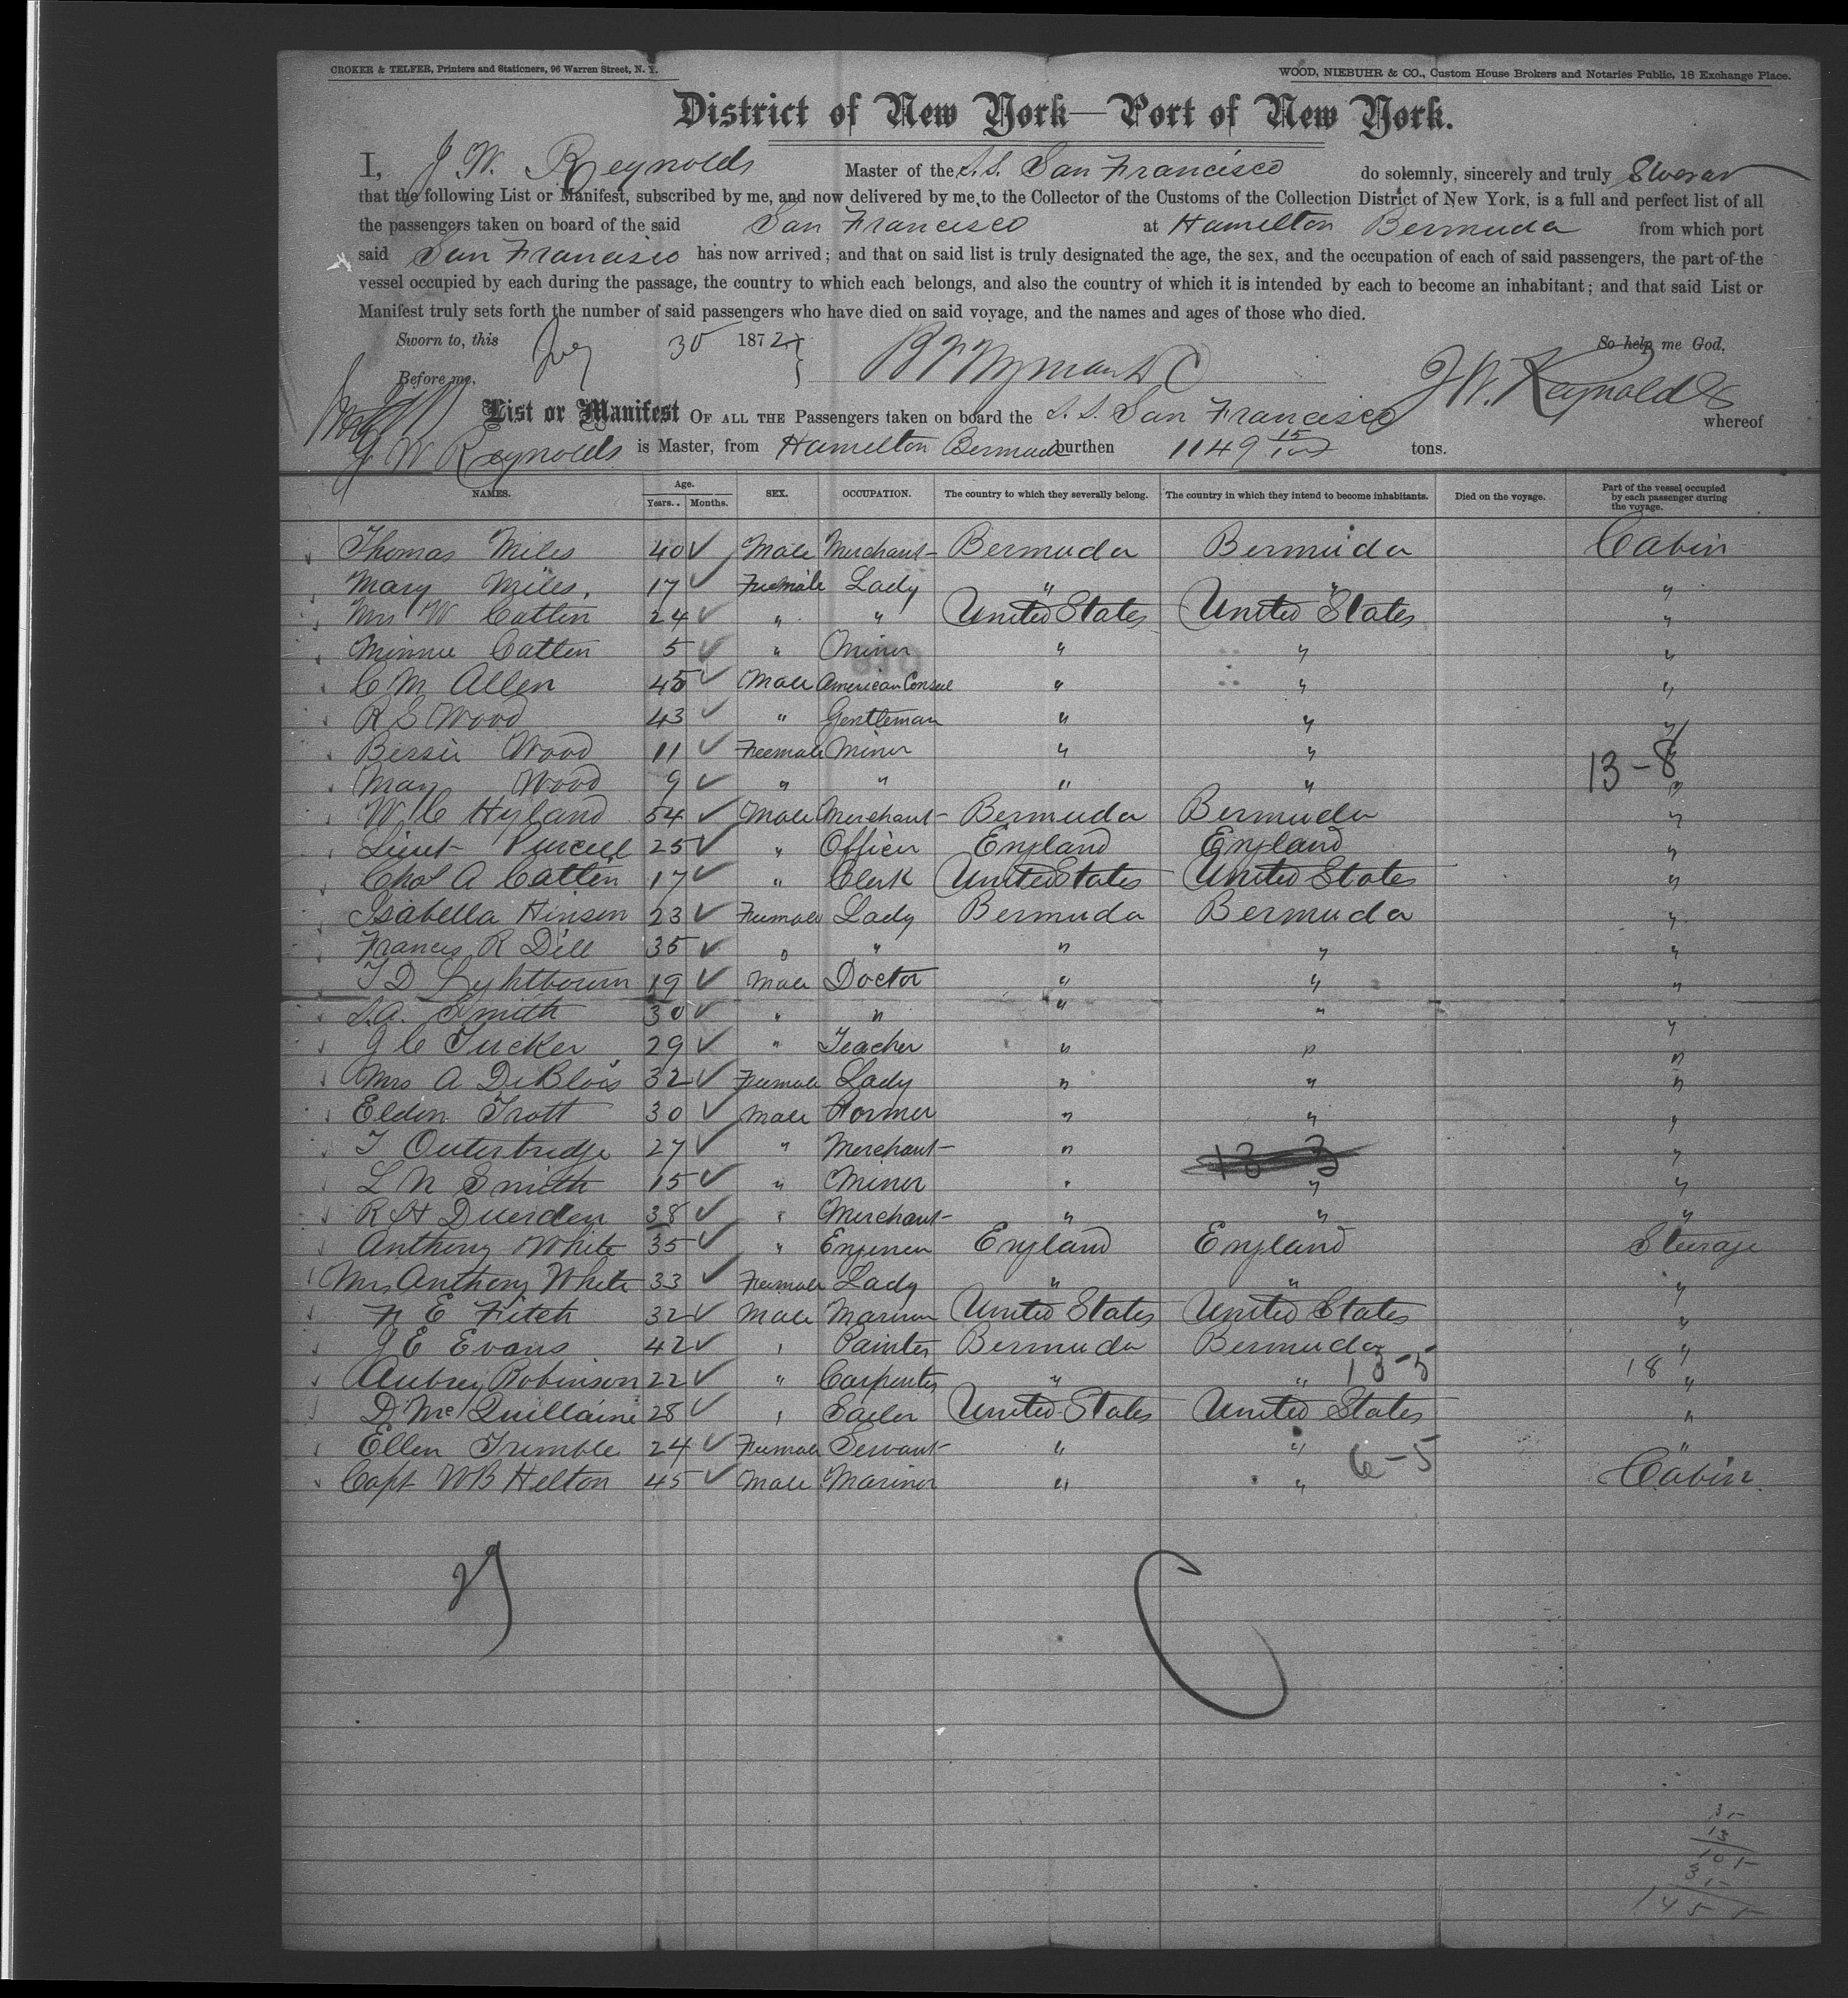 CROKER & TELFER, Printers and Stationers, 96 Warren Street, N. Y.
WOOD, NIEBUHR & CO., Custom House Brokers and Notaries Public, 18 Exchange Place.
District of New York—Port of New York.
I, J W. Reynolds Master of the S.S. San Francisco do solemnly, sincerely and truly Swear
that the following List or Manifest, subscribed by me, and now delivered by me to the Collector of the Customs of the Collection District of New York, is a full and perfect list of all
the passengers taken on board of the said San Francisco at Hamilton Bermuda from which port
said San Francisco has now arrived; and that on said list is truly designated the age, the sex, and the occupation of each of said passengers, the part of the
vessel occupied by each during the passage, the country to which each belongs, and also the country of which it is intended by each to become an inhabitant; and that said List or
Manifest truly sets forth the number of said passengers who have died on said voyage, and the names and ages of those who died.
Sworn to, this 30 1872 So help me God,
Before me, J W. Reynolds
List or Manifest OF ALL THE Passengers taken on board the S. S. San Francisco whereof
J W Reynolds is Master, from Hamilton Bermuda burthen 1149 15/100 tons.
NAMES. Age. Years. Months. SEX. OCCUPATION. The country to which they severally belong. The country in which they intend to become inhabitants. Died on the voyage. Part of the vessel occupied by each passenger during the voyage.
Thomas Miles 40 ✓ Male Merchant Bermuda Bermuda Cabin
Mary Miles, 17 ✓ Freemale Lady " " "
Mrs W Catlin 24 ✓ " " United States United States "
Minnie Catlin 5 ✓ " Minor " " "
C M Allen 45 ✓ Male American Consul " " "
R S Wood 43 ✓ " Gentleman " " "
Bersie Wood 11 ✓ Freemale Minor " " "
May Wood 9 ✓ " " " " 13-8 "
W C Hyland 54 ✓ Male Merchant Bermuda Bermuda "
Lieut Purcell 25 ✓ " Officer England England "
Chas A Catlin 17 ✓ " Clerk United States United States "
Isabella Hinson 23 ✓ Freemale Lady Bermuda Bermuda "
Frances R Dill 35 ✓ " " " " "
T D Lightbourn 19 ✓ Male Doctor " " "
S.A. Smith 30 ✓ " " " " "
J C Tucker 29 ✓ " Teacher " " "
Mrs A DeBlois 32 ✓ Freemale Lady " " "
Eldon Trott 30 ✓ Male Farmer " " "
T Outerbridge 27 ✓ " Merchant " "
L N Smith 15 ✓ " Minor " " "
R H Duerden 38 ✓ " Merchant " " "
Anthony White 35 ✓ " Enginer England England Sterage
Mrs Anthony White 33 ✓ Freemale Lady " " "
F E Fitch 32 ✓ Male Mariner United States United States "
J E Evans 42 ✓ " Painter Bermuda Bermuda "
Aubrey Robinson 22 ✓ " Carpenter " " 13-5 18 "
D McQuillaine 28 ✓ " Sailor United States United States "
Ellen Trimble 24 ✓ Freemale Servant " " "
Capt W B Helton 45 ✓ Male Marinor " " 6-5 Cabin
29